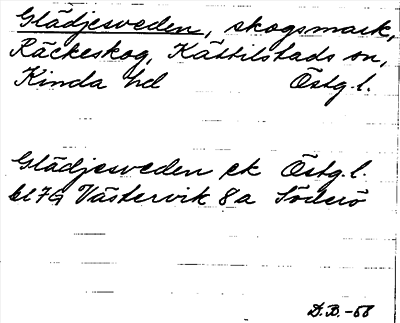 Glädjesveden, skogsmark,
Räckeskog, Kättilstads sn,
Kinda hd Östg.l.
Glädjesveden ek Östg.l.
bl 79 Västervik 8a Söderö
D.B. -58